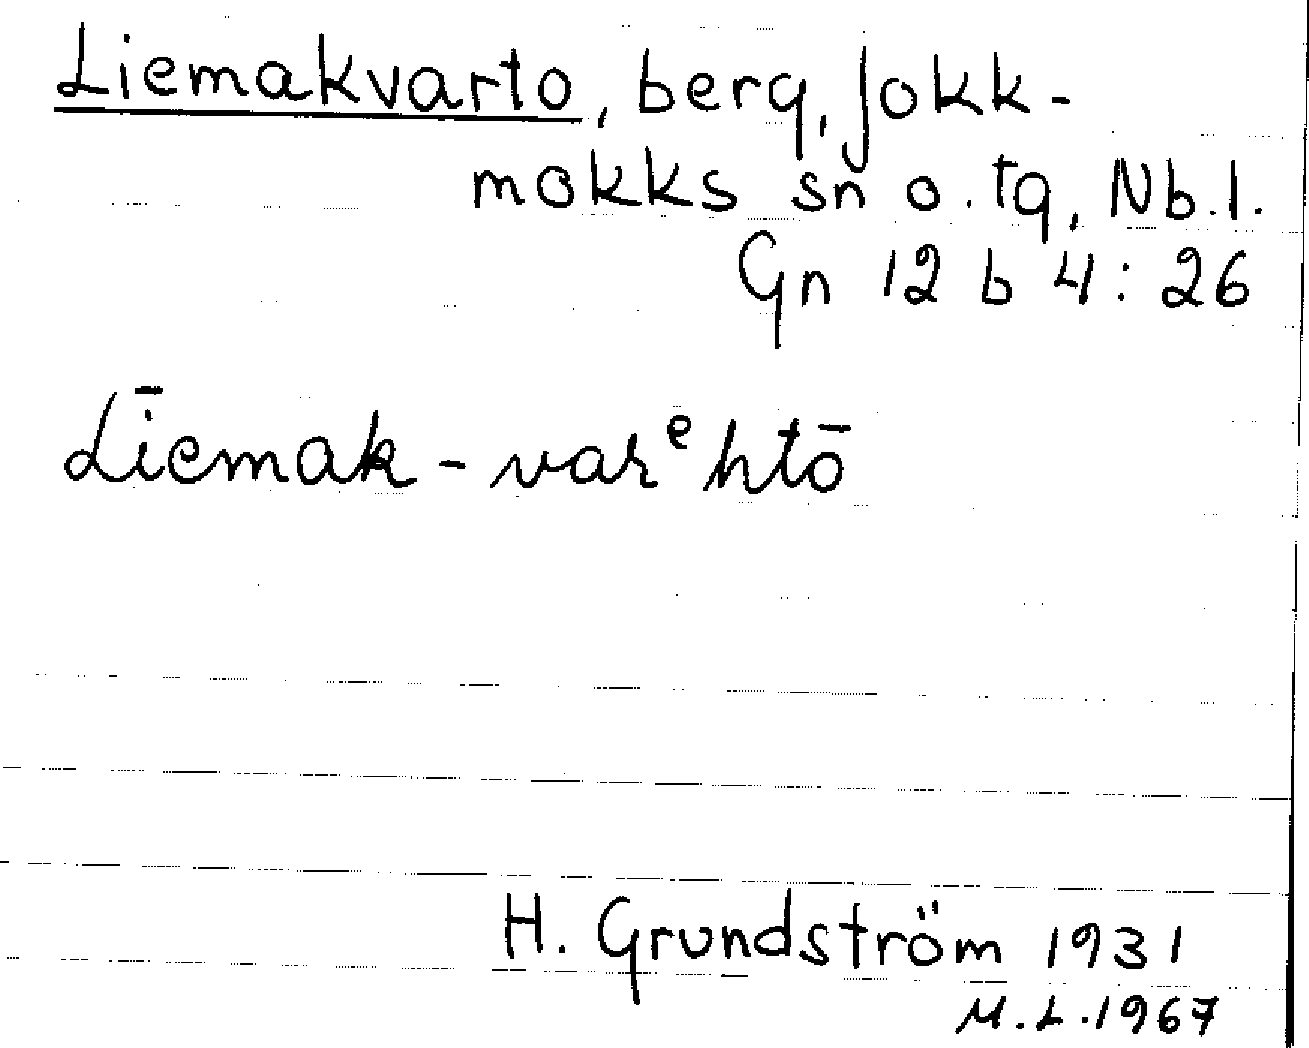 Liemakvarto, berg, Jokk-
mokks sn o. tg, Nb. l.
Gn 12 b 4 : 26
Līemak - varᵉhtō
H. Grundström 1931
M. L. 1967